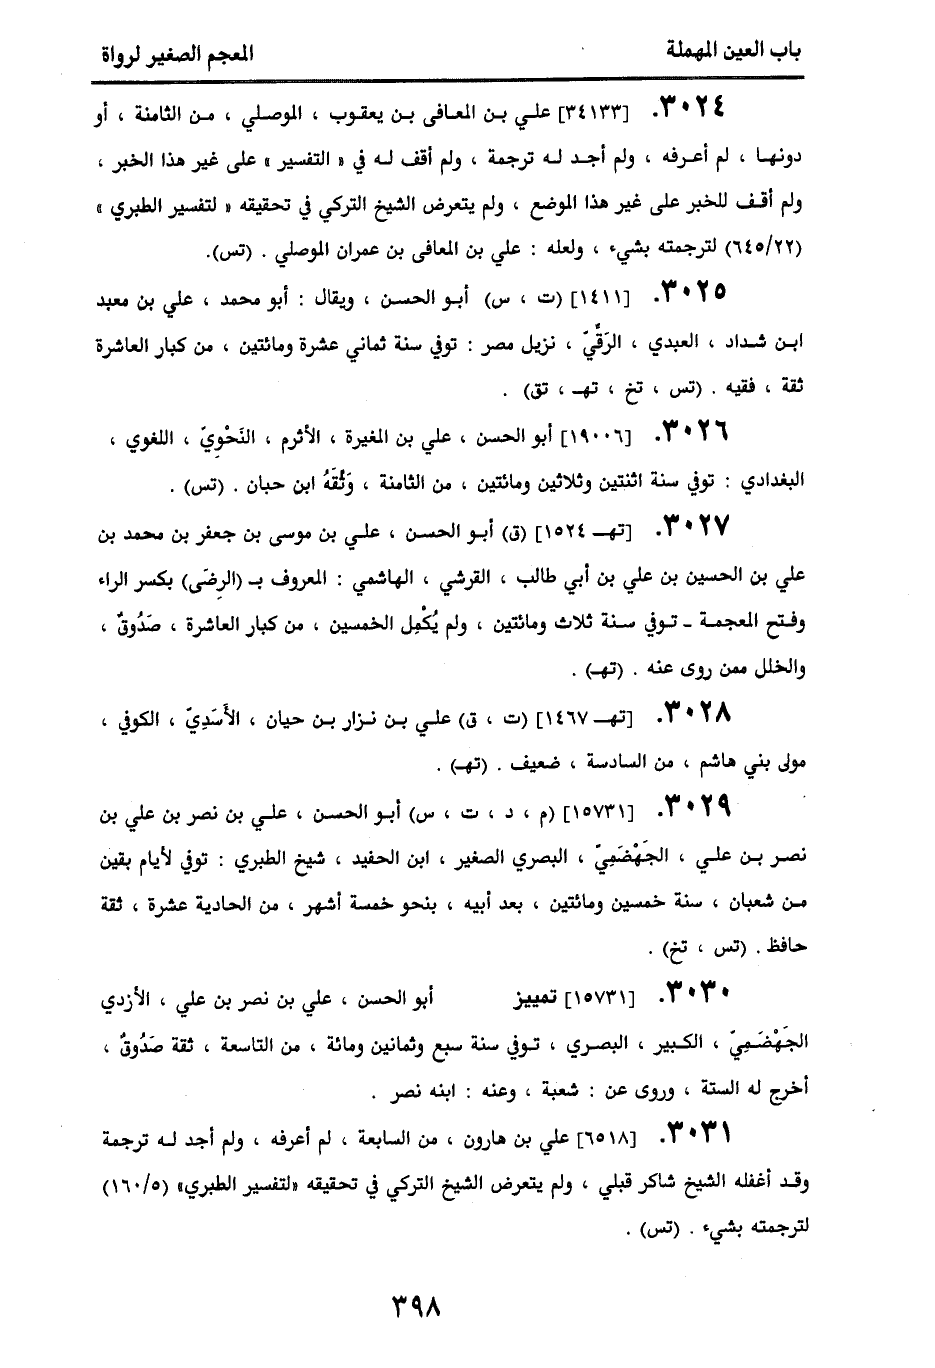 باب العين المهملة
المعجم الصغير لرواة
٣٠٢٤. [٣٤١٣٣] علي بن المعافى بن يعقوب ، الموصلي ، من الثامنة ، أو
دونها ، لم أعرفه ، ولم أجد له ترجمة ، ولم أقف له في « التفسير » على غير هذا الخبر ،
ولم أقف للخبر على غير هذا الموضع ، ولم يتعرض الشيخ التركي في تحقيقه « لتفسير الطبري »
(٦٤٥/٢٢) لترجمته بشيء ، ولعله : علي بن المعافى بن عمران الموصلي . (تس).
٣٠٢٥. [١٤١١] (ت ، س) أبو الحسن ، ويقال : أبو محمد ، علي بن معبد
ابن شداد ، العبدي ، الرَقِّيّ ، نزيل مصر : توفي سنة ثماني عشرة ومائتين ، من كبار العاشرة
ثقة ، فقيه . (تس ، تخ ، تهـ ، تق) .
٣٠٢٦. [١٩٠٠٦] أبو الحسن ، علي بن المغيرة ، الأثرم ، النَحْوِيّ ، اللغوي ،
البغدادي : توفي سنة اثنتين وثلاثين ومائتين ، من الثامنة ، وَثَّقَهُ ابن حبان . (تس) .
٣٠٢٧. [تهـ ١٥٢٤] (ق) أبو الحسن ، علي بن موسى بن جعفر بن محمد بن
علي بن الحسين بن علي بن أبي طالب ، القرشي ، الهاشمي : المعروف بـ (الرِضَى) بكسر الراء
وفتح المعجمة ـ توفي سنة ثلاث ومائتين ، ولم يُكْمِل الخمسين ، من كبار العاشرة ، صَدُوقٌ ،
والخلل ممن روى عنه . (تهـ) .
٣٠٢٨. [تهـ ١٤٦٧] (ت ، ق) علي بن نزار بن حيان ، الأَسَدِيّ ، الكوفي ،
مولى بني هاشم ، من السادسة ، ضعيف . (تهـ) .
٣٠٢٩. [١٥٧٣١] (م ، د ، ت ، س) أبو الحسن ، علي بن نصر بن علي بن
نصر بن علي ، الجَهْضَمِيّ ، البصري الصغير ، ابن الحفيد ، شيخ الطبري : توفي لأيام بقين
من شعبان ، سنة خمسين ومائتين ، بعد أبيه ، بنحو خمسة أشهر ، من الحادية عشرة ، ثقة
حافظ . (تس ، تخ) .
٣٠٣٠. [١٥٧٣١] تمييز أبو الحسن ، علي بن نصر بن علي ، الأزدي
الجَهْضَمِيّ ، الكبير ، البصري ، توفي سنة سبع وثمانين ومائة ، من التاسعة ، ثقة صَدُوقٌ ،
أخرج له الستة ، وروى عن : شعبة ، وعنه : ابنه نصر .
٣٠٣١. [٦٥١٨] علي بن هارون ، من السابعة ، لم أعرفه ، ولم أجد له ترجمة
وقد أغفله الشيخ شاكر قبلي ، ولم يتعرض الشيخ التركي في تحقيقه «لتفسير الطبري» (١٦٠/٥)
لترجمته بشيء . (تس) .
٣٩٨